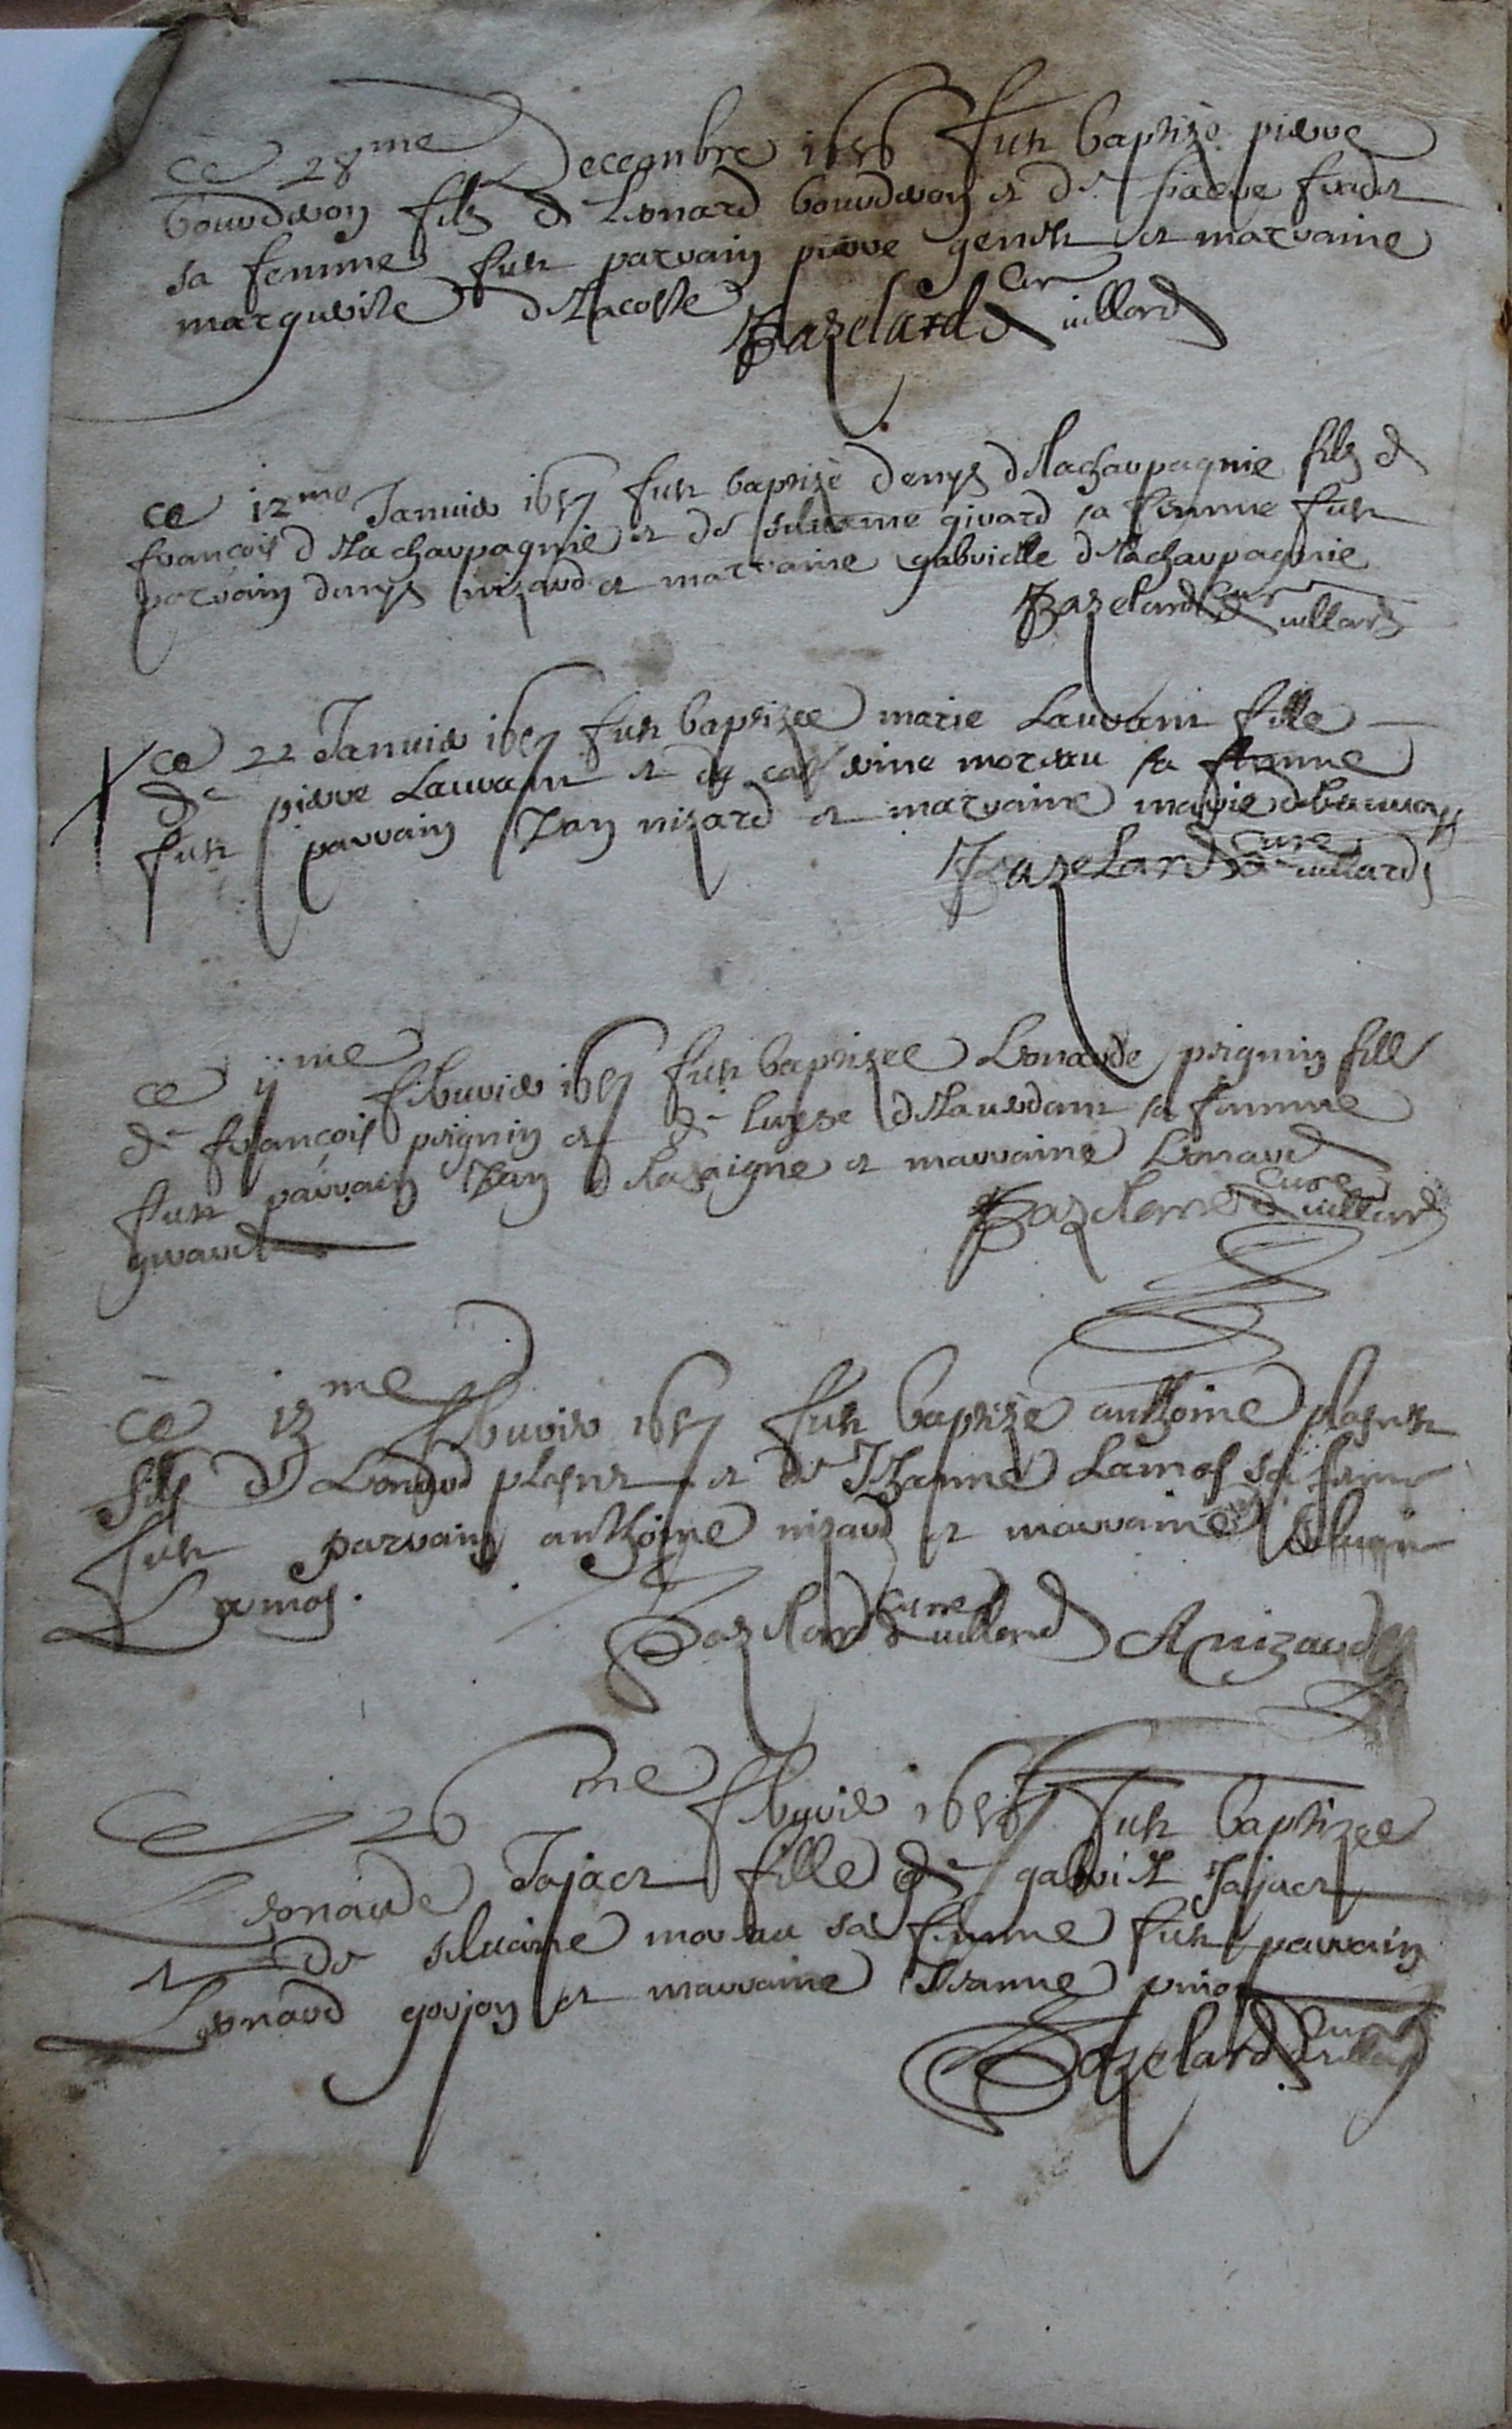 ce 28me Decembre 1656 fut baptizé pierre
bourderon filz de Leonard bourderon et de
sa femme fut parrain pierre gentil et marraine
marguerite de Lacoste
Bazelard cur de villard
ce 12me Januier 1657 fut baptizé denys de Lachaupagnie filz de
françois de Lachaupagnie et de siluaine girard sa femme fut
parrain denys nizaud et marraine gabrielle de Lachaupagnie
Bazelard cur de villard
ce 22 Januier 1657 fut baptizee marie Laurant fille
de pierre Laurant et de catherine moreau sa femme
fut parrain Jean nizard et marraine marie
Bazelard curé de villard
ce 11me feburier 1657 fut baptizee Leonarde peignin fille
de françois peignin et de sa femme
fut parrain Jean de Lasaigne et marraine Leonarde
giraud
Bazelard curé de villard
ce 13me feburier 1657 fut baptizé anthoine plasent
filz de Leonard plesent et de Jeanne Lamos sa femme
fut parrain anthoine nizaud et marraine
Lamos.
Bazelard curé de villard A nizaud
Ce 26me feburier 1657 fut baptizee
Leonarde Jajact fille de gabriel Jajact
et de siluaine moreau sa femme fut parrain
Leonard goujon et marraine Jeanne
Bazelard curé de villard